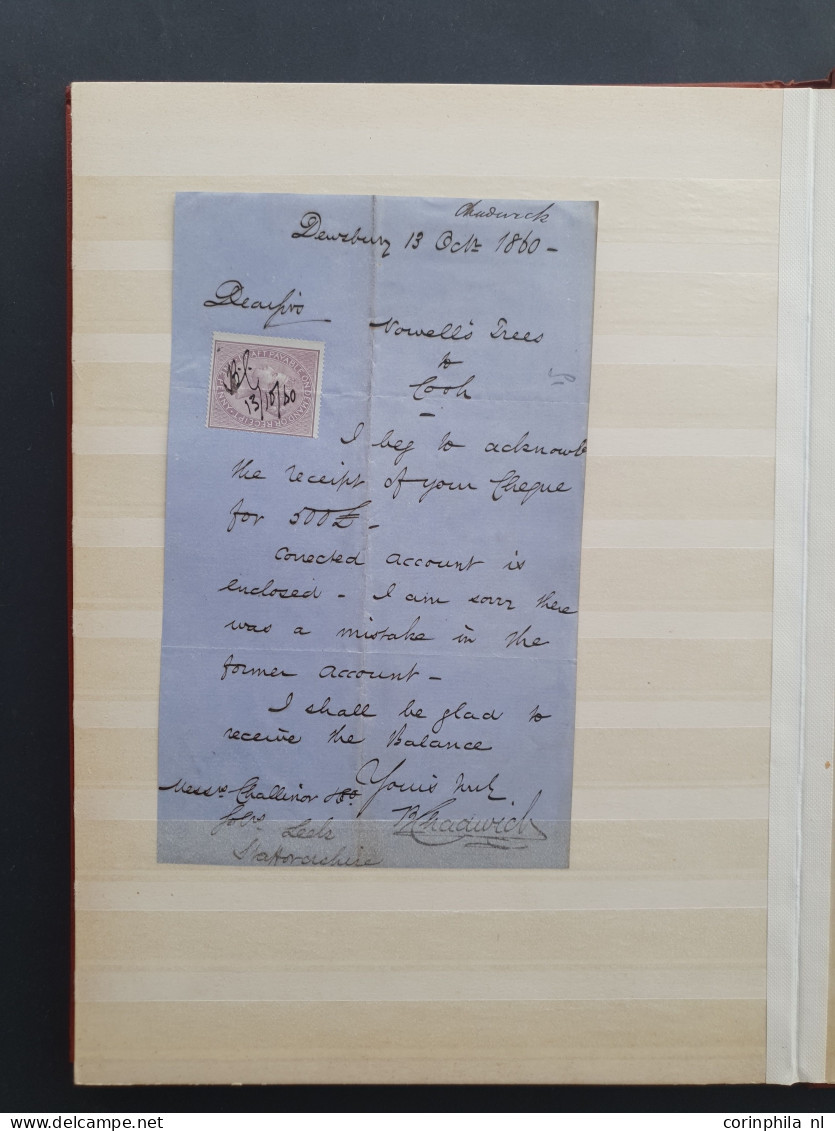 Chadwick
Dewsbury 13 Octr 1860 -
Dear Sirs
Nowell's Trees
to
Cook
DRAFT PAYABLE ON DEMAND OR RECEIPT
B.C.
13/10/60
I beg to acknowle
the receipt of your Cheque
for 500£ -
Corrected account is
enclosed - I am sorry there
was a mistake in the
former account -
I shall be glad to
receive the Balance
Yours truly
Messrs Challinor &Co
BChadwick
Solrs Leek
Staffordshire
www.corinphila nl